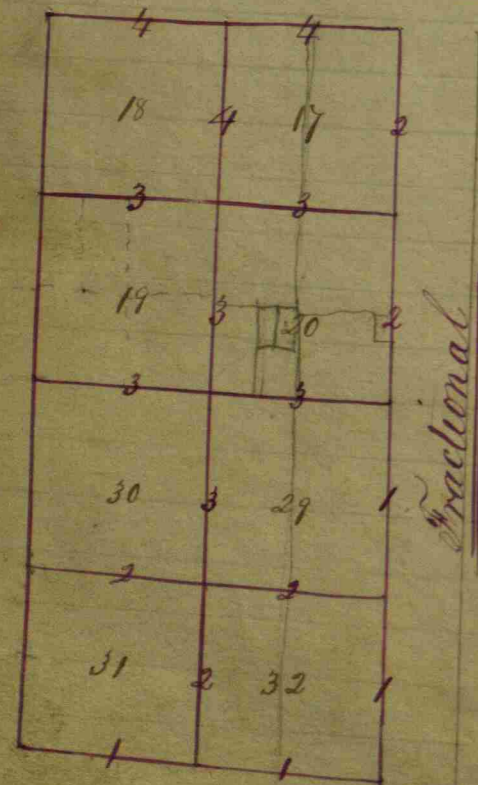 4 4
18 4 17 2
3 3
19 3 20 2
3 3
30 3 29 1
2 2
31 2 32 1
1 1
Fractional